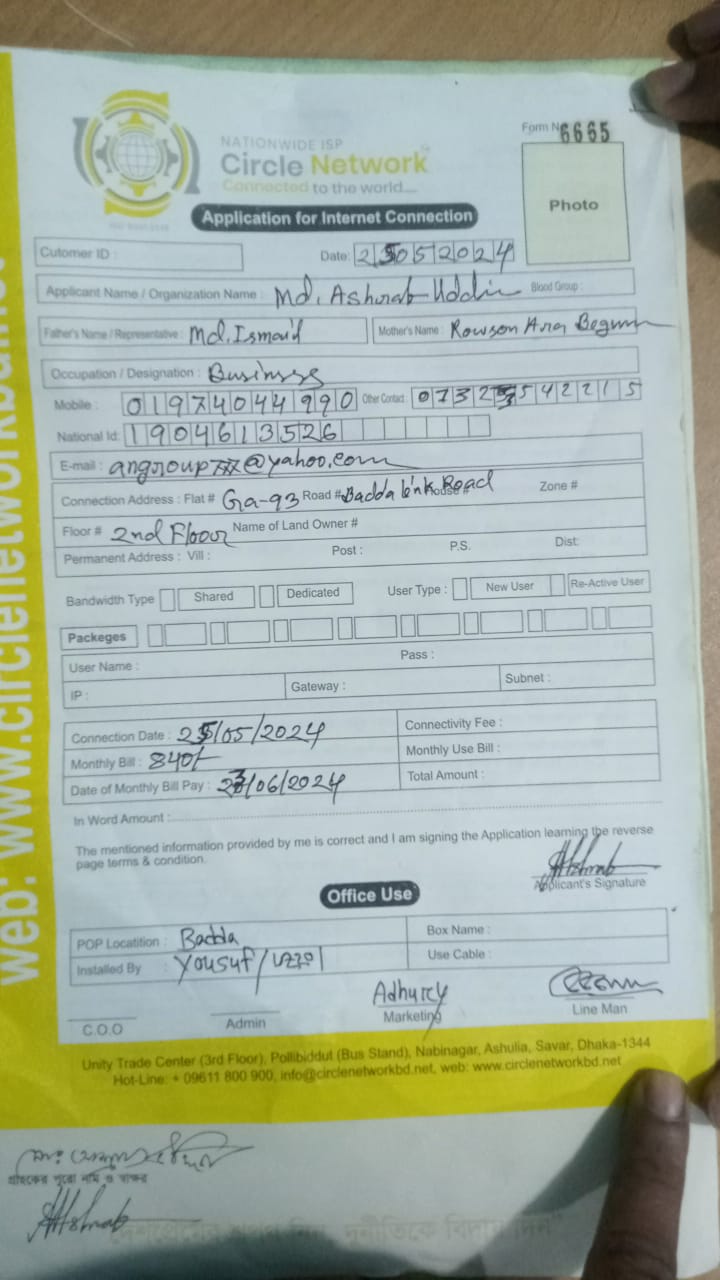 web: www.circlenetworkbd.net
NATIONWIDE ISP
Circle Network
Connected to the world....
Form N 6665
Photo
Application for Internet Connection
Cutomer ID :
Date: 25052024
Applicant Name / Organization Name : Md. Ashrab Uddin Blood Group :
Father's Name / Representative : Md. Ismail Mother's Name : Rowson Ara Begum
Occupation / Designation : Businsss
Mobile : 01974044990 Other Contact :
National Id: 1904613526
E-mail : @yahoo.com
Connection Address : Flat # Ga-93 Road # Badda link Road House # Zone #
Floor # 2nd Floor Name of Land Owner #
Permanent Address : Vill : Post : P.S. Dist:
Bandwidth Type Shared Dedicated User Type : New User Re-Active User
Packeges
User Name : Pass :
IP : Gateway : Subnet :
Connection Date : 25/05/2024 Connectivity Fee :
Monthly Bill : 840/- Monthly Use Bill :
Date of Monthly Bill Pay : /06/2024 Total Amount :
In Word Amount :
The mentioned information provided by me is correct and I am signing the Application learning the reverse
page terms & condition.
Applicant's Signature
Office Use
POP Locatition : Badda Box Name :
Installed By : Yousuf/ Use Cable :
C.O.O Admin Adhurcy Marketing Line Man
Unity Trade Center (3rd Floor), Pollibiddut (Bus Stand), Nabinagar, Ashulia, Savar, Dhaka-1344
Hot-Line: + 09611 800 900, info@circlenetworkbd.net, web: www.circlenetworkbd.net
গ্রাহকের পুরো নাম ও স্বাক্ষর
"দেশপ্রেমের শপথ নিন, দুর্নীতিকে বিদায় দিন"